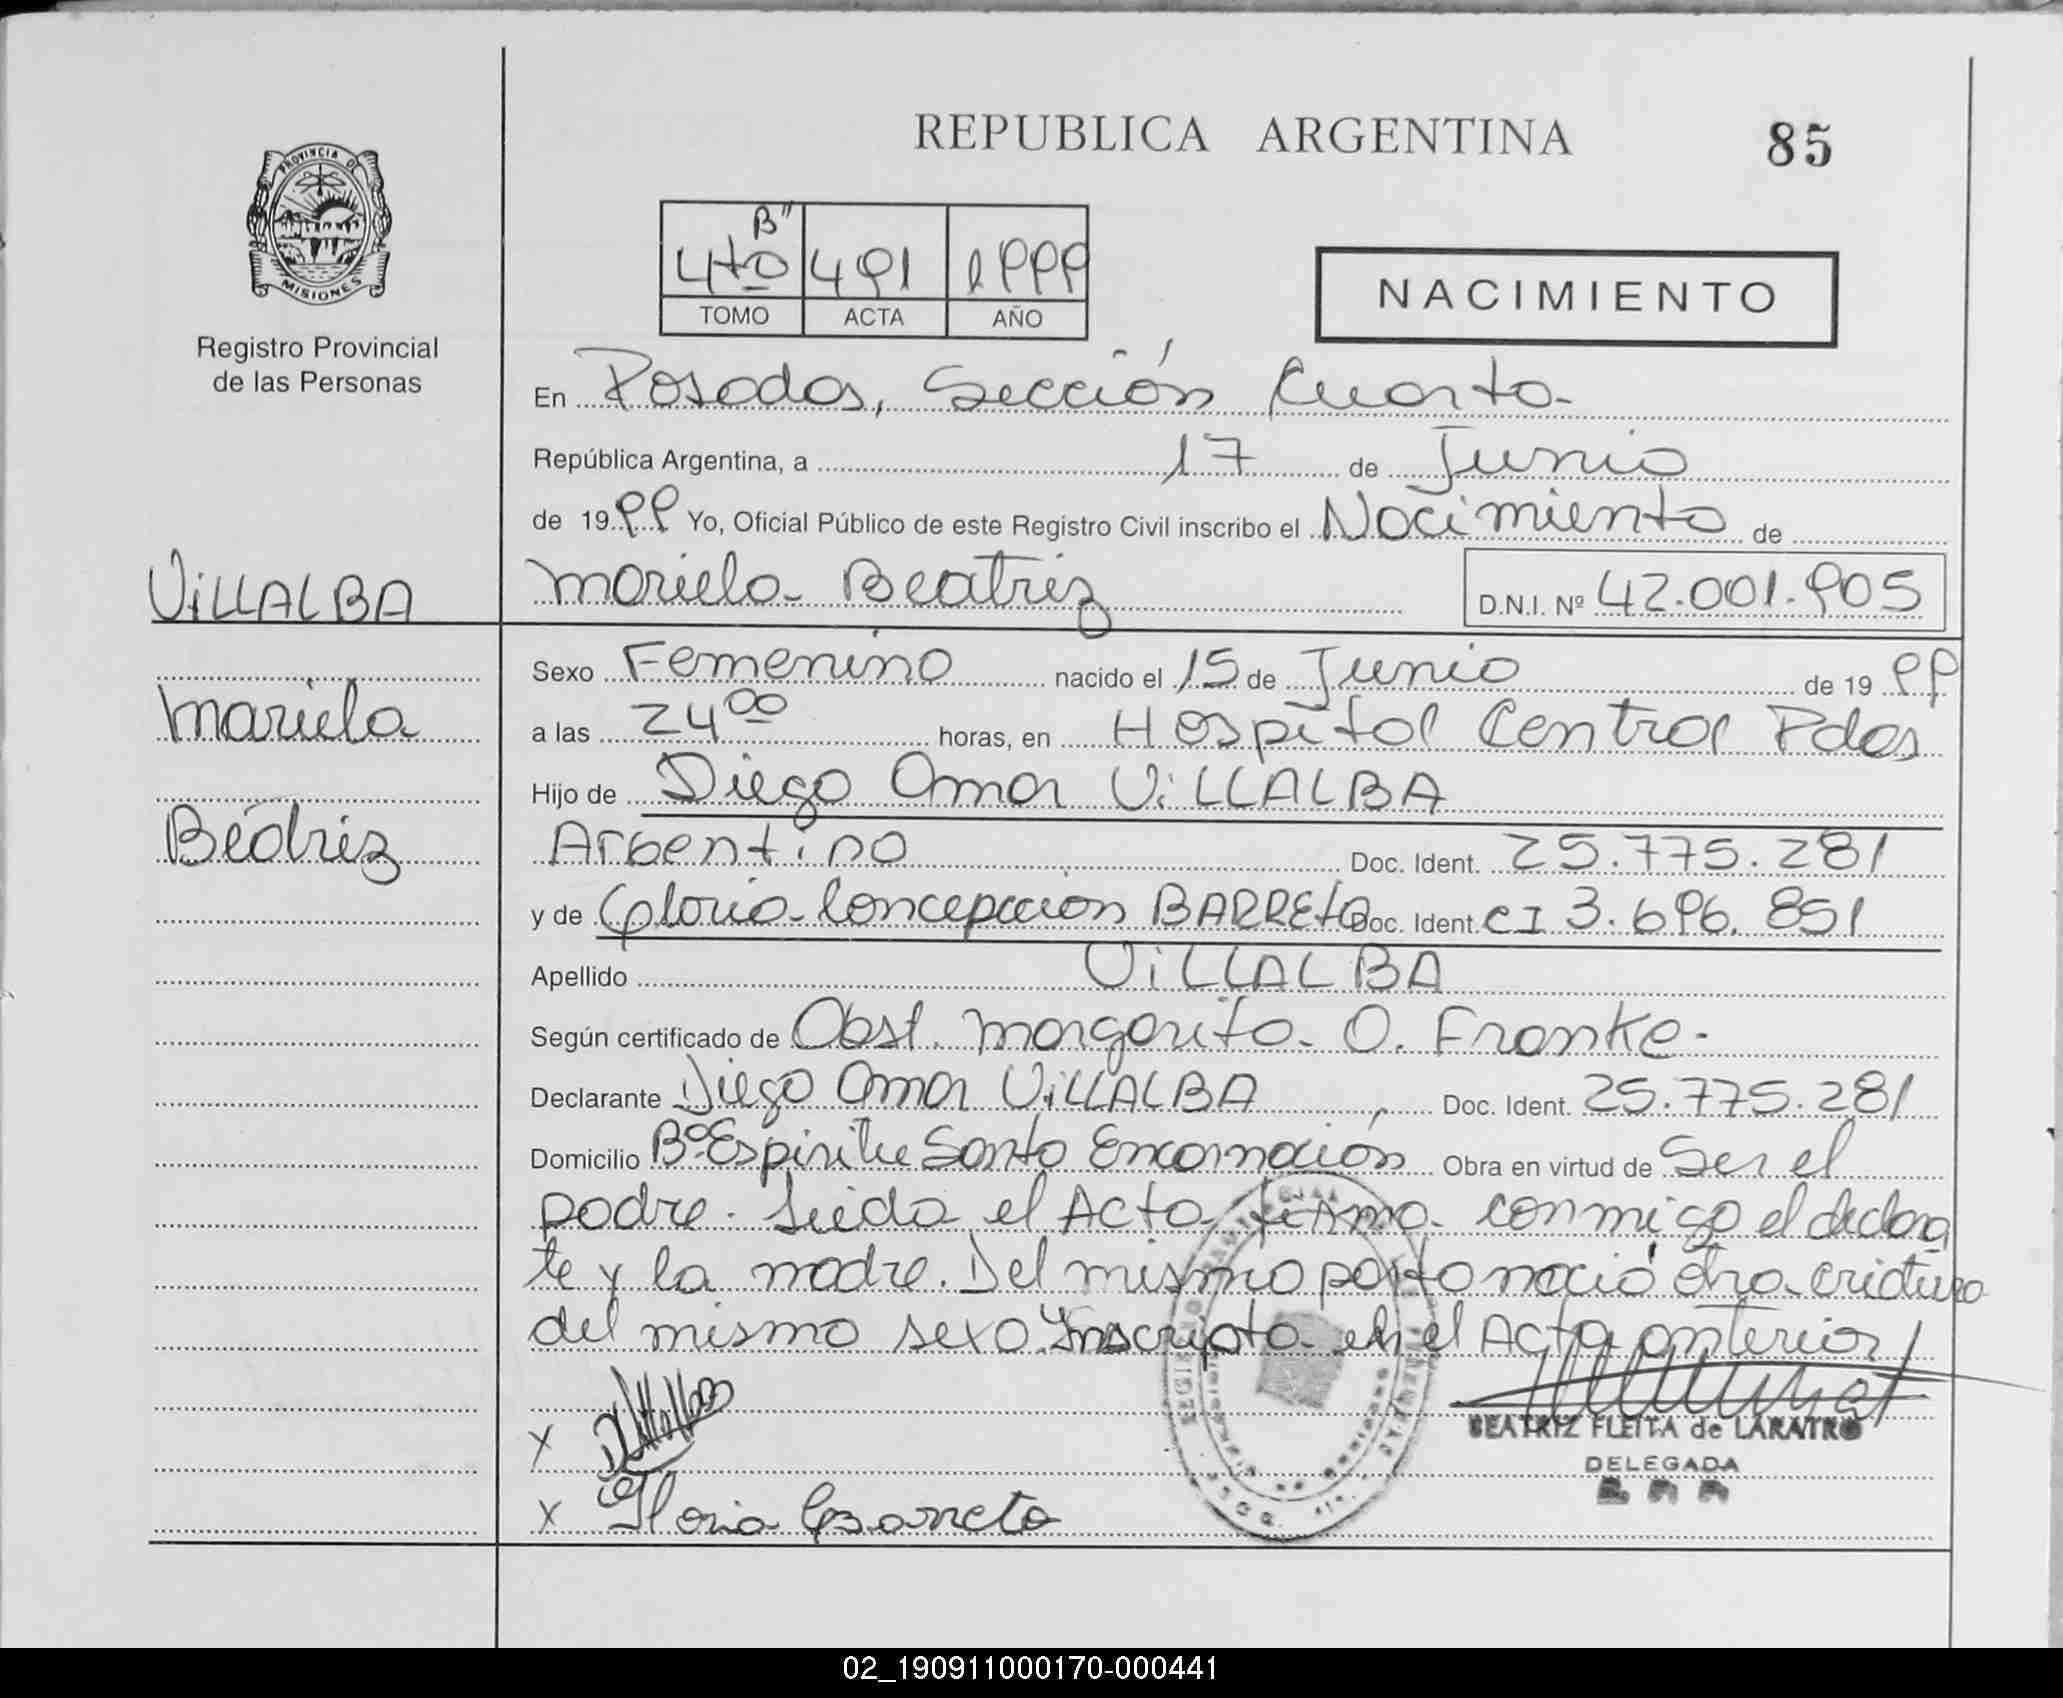 REPUBLICA ARGENTINA
85
PROVINCIA DE
MISIONES
Registro Provincial
de las Personas
4to B"
491
1999
TOMO
ACTA
AÑO
NACIMIENTO
En Posadas, Sección Cuarta
República Argentina, a 17 de Junio
de 1999 Yo, Oficial Público de este Registro Civil inscribo el Nacimiento de
VILLALBA
Mariela Beatriz
D.N.I. Nº 42.001.905
Sexo Femenino nacido el 15 de Junio de 1999
Mariela
a las 24 00 horas, en Hospital Central Pdas
Hijo de Diego Omar VILLALBA
Beatriz
Argentino Doc. Ident. 25.775.281
y de Gloria Concepcion BARRETO Doc. Ident. CI 3.696.851
Apellido VILLALBA
Según certificado de Obst. Margarita O. Franke.
Declarante Diego Omar VILLALBA Doc. Ident. 25.775.281
Domicilio Bº Espiritu Santo Encarnación Obra en virtud de Ser el
padre. Leida el Acta firma conmigo el declaran
te y la madre. Del mismo parto nació otra criatura
del mismo sexo Inscripta en el Acta anterior
BEATRIZ FLEITA de LARATRO
DELEGADA
X
X Gloria Barreto
02_190911000170-000441